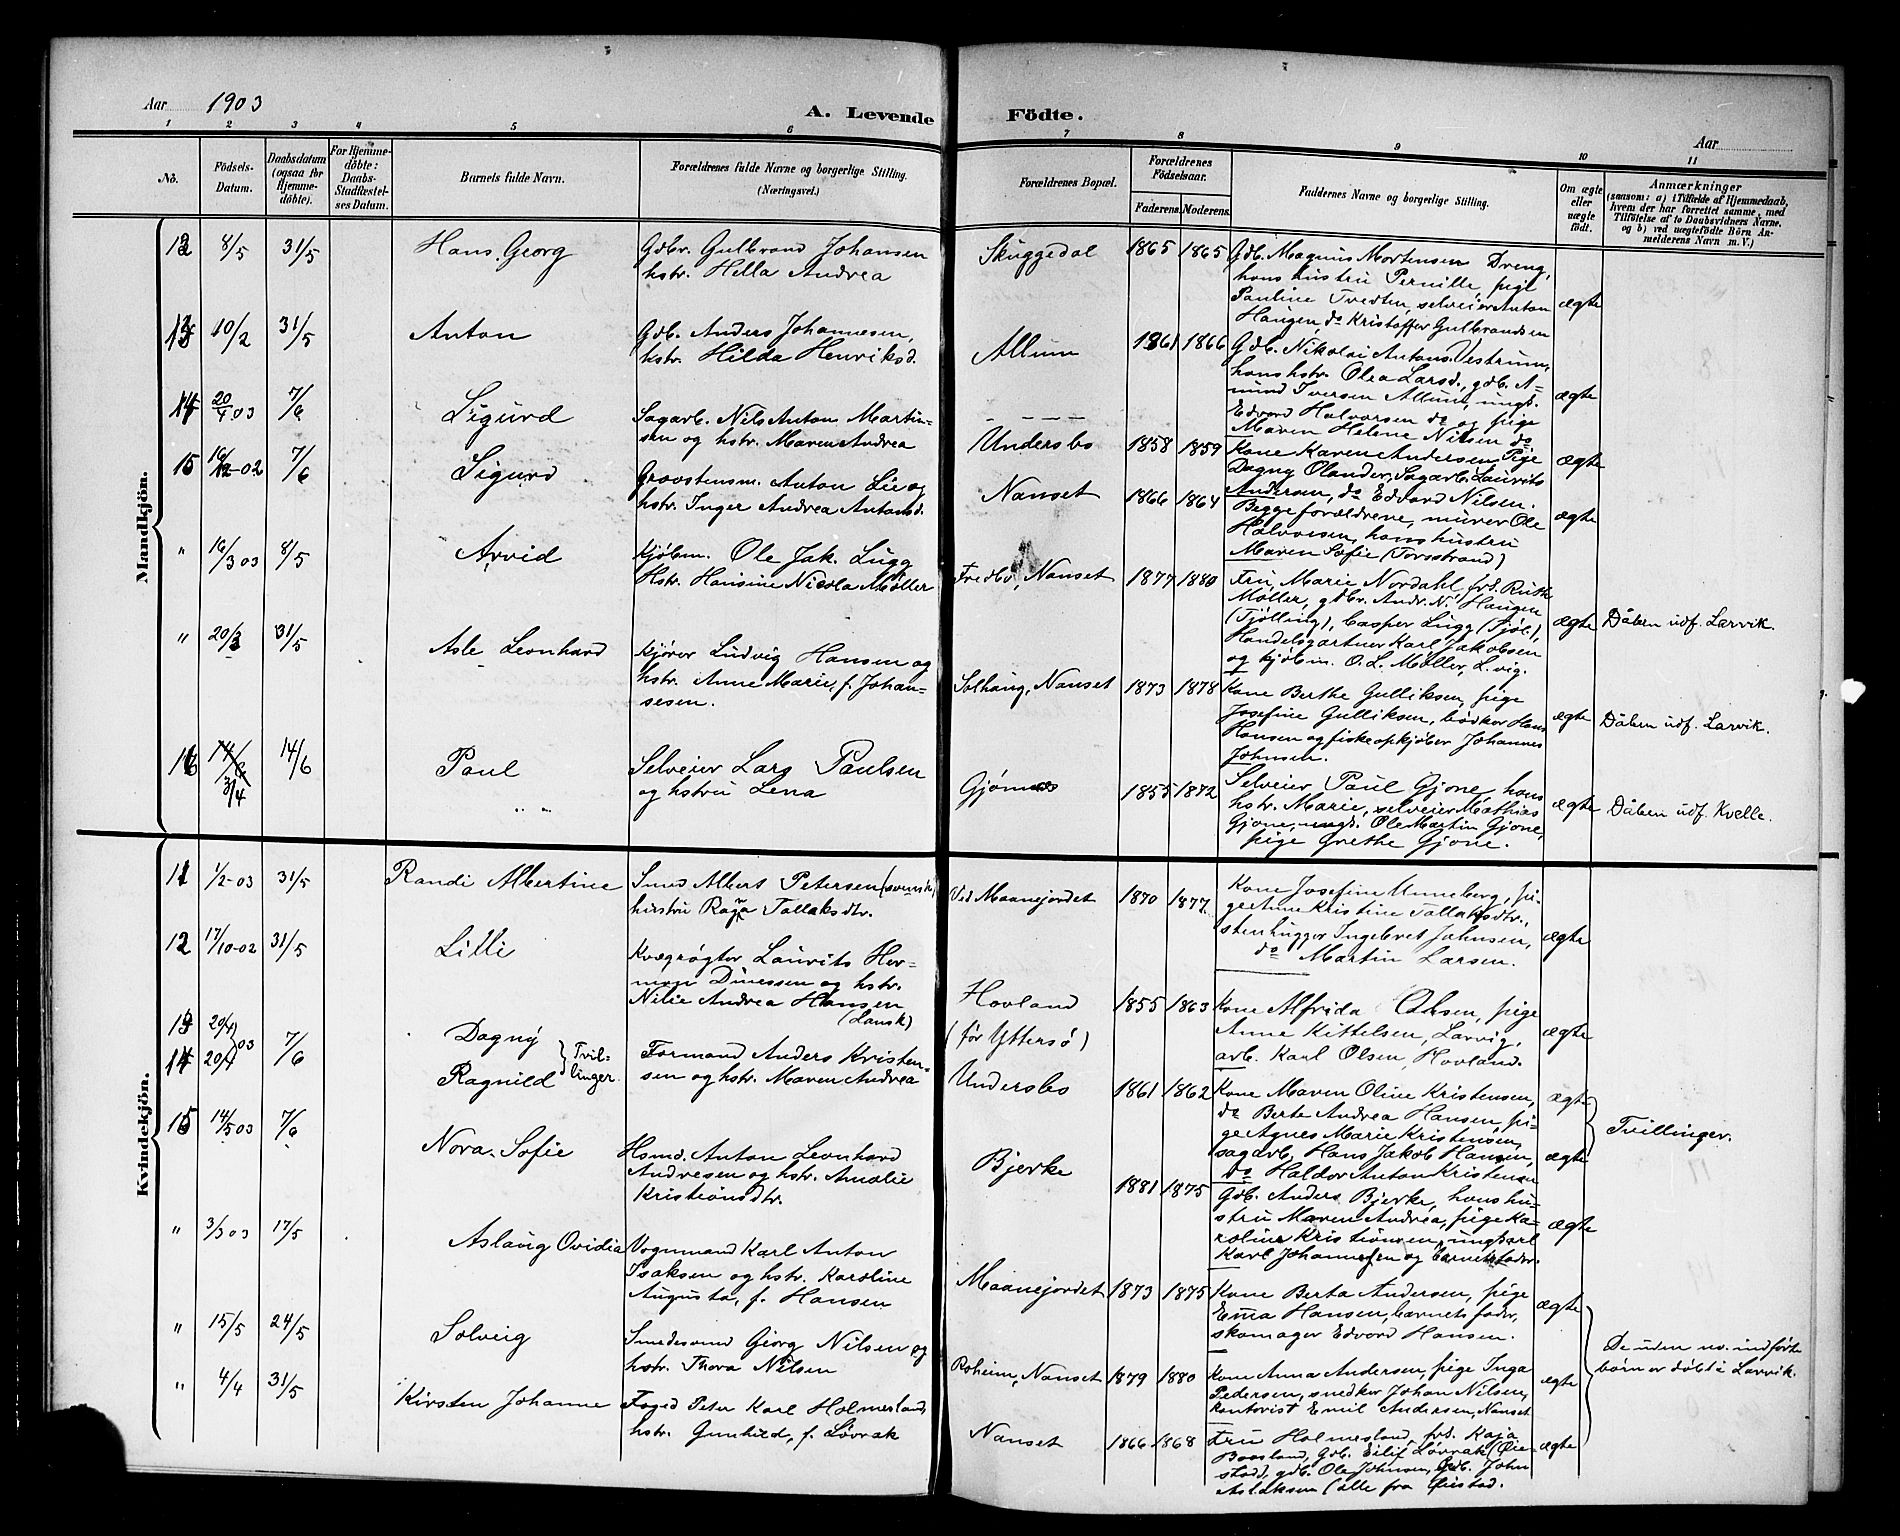 Aar 1903
A. Levende Födte.
Aar
1 2 3 4 5 6 7 8 9 10 11
No.
Födsels-Datum.
Daabsdatum (ogsaa for Hjemme-döbte).
For Hjemme-döbte: Daabs-Stadfæstel-ses Datum.
Barnets fulde Navn.
Forældrenes fulde Navne og borgerlige Stilling.
(Næringsvei.)
Forældrenes Bopæl.
Forældrenes Födselsaar.
Faderens. Moderens.
Faddernes Navne og borgerlige Stilling.
Om ægte eller uægte födt.
Anmærkninger
(saasom: a) i Tilfælde af Hjemmedaab, hvem der har forrettet samme, med Tilföielse af to Daabsvidners Navne, og b) ved uægtefödte Börn An-melderens Navn m. V.)
Mandkjön.
12 8/5 31/5 Hans Georg
Gdbr. Gulbrand Johansen
hstr. Hella Andrea
Skuggedal 1865 1865
Gdb. Magnus Mortensen Dreng,
hans hustru Pernille, pige
Pauline Tvedten, selveier Anton
Haugen, do Kristoffer Gulbrandsen
ægte
13 10/2 31/5 Anton
Gdb. Anders Johannesen,
hstr. Hilda Henriksd.
Allum 1861 1866
Gdb. Nikolai Antons. Vestrum,
hans hstr. Olea Larsd., gdb. A-
mund Iversen Allum, ungk.
Edvard Halvorsen do og pige
Maren Helene Nilsen do
ægte
14 20/4 03 7/6 Sigurd
Sagarb. Nils Anton Martin-
sen og hstr. Maren Andrea
Undersbo 1858 1859
Kone Karen Andersen, Pige
Dagny Olander, Sagarb. Laurits
Andersen, do Edvard Nilsen.
ægte
15 16/12-02 7/6 Sigurd
Grovstensm. Anton Lie og
hstr. Inger Andrea Antonsd.
Nanset 1866 1864
Begge forældrene, murer Ole
Halvorsen, hans hustru
Maren Sofie (Torsstrand)
ægte
" 16/3 03 8/5 Arvid
Kjøbm. Ole Jak. Lugg
Hstr. Hansine Nicola Møller
Fredbo, Nanset 1877 1880
Fru Marie Nordahl, frk. Ruth
Møller, gdbr. Andr. N. Haugen
(Tjølling), Casper Lugg (Tjøl.),
Handelsgartner Karl Jakobsen
og kjøbm. O. L. Møller, L.vig.
ægte
Dåben udf. Larvik.
" 20/3 31/5 Asle Leonhard
Kjører Ludvig Hansen og
hstr. Anne Marie, f. Johan-
sesen.
Solhaug, Nanset 1873 1878
Kone Berthe Gulliksen, pige
Josefine Gulliksen, bødker Hans
Hansen og fiskeopkjøber Johannes
Johnsen.
ægte
Dåben udf. Larvik.
16 14/6 3/4 14/6 Paul
Selveier Lars Paulsen
og hstru Lena
Gjønnes 1855 1872
Selveier Paul Gjone, hans
hstr. Marie, selveier Mathias
Gjone, ungk. Ole Martin Gjone,
pige Grethe Gjone.
ægte
Dåben udf. Kvelle.
Kvindekjön.
11 1/2-03 31/5 Randi Albertine
Smed Albert Petersen (svensk)
hustru Ragna Tallaksdtr.
Ved Maanejordet 1870 1877
Kone Josefine Unneberg, pi-
ge Anne Kristine Tallaksdtr.,
stenhugger Ingebret Johnsen,
do Martin Larsen.
ægte
12 17/10-02 31/5 Lilli
Kvægrøgter Laurits Her-
man Dinessen og hstr.
Nilie Andrea Hansen
(Dansk)
Hovland
(før Yttersø)
1855 1863
Kone Alfrida Olsen, pige
Anne Kittelsen, Larvig,
arb. Karl Olsen, Hovland.
ægte
13 20/4 03 Dagny
14 20/4 7/6 Ragnild
Tvil-
linger.
Formand Anders Kristen-
sen og hstr. Maren Andrea
Undersbo 1861 1862
Kone Maren Oline Kristensen,
do Berte Andrea Hansen, pi-
ge Agnes Marie Kristensen,
sagarb. Hans Jakob Hansen,
do Haldor Anton Kristensen
ægte
ægte
Tvillinger.
15 14/5 03 7/6 Nora Sofie
Hsmd. Anton Leonhard
Andresen og hstr. Amalie
Kristiansdtr.
Bjerke 1881 1875
Gdb. Anders Bjerke, hans hu-
stru Maren Andrea, pige Ka-
roline Kristiansen, ungkarl
Karl Johannesen og barnets fader.
ægte
" 3/3 03 17/5 Aslaug Ovidia
Vognmand Karl Anton
Isaksen og hstr. Karoline
Augusta, f. Hansen
Maanejordet 1873 1875
Kone Berta Andersen, pige
Emma Hansen, barnets fader,
skomager Edvard Hansen.
ægte
" 15/5 24/5 Solveig
Smedesvend Georg Nilsen og
hstr. Thora Nilsen
Roheim, Nanset 1879 1880
Kone Anna Andersen, pige Inga
Pedersen, snedker Johan Nilsen,
kontorist Emil Andersen, Nanset
ægte
De uden no. indførte
børn er døbt i Larvik.
" 4/4 31/5 Kirsten Johanne
Foged Peter Karl Holmesland,
hstr. Gunhild, f. Løvrak
Nanset 1866 1868
Fru Holmesland, frk. Kaja
Baasland, gdb. Eilif Løvrak (Øie-
stad), gdb. Ole Johnsen, Gdb. John
Aslaksen (alle fra Øiestad.
ægte